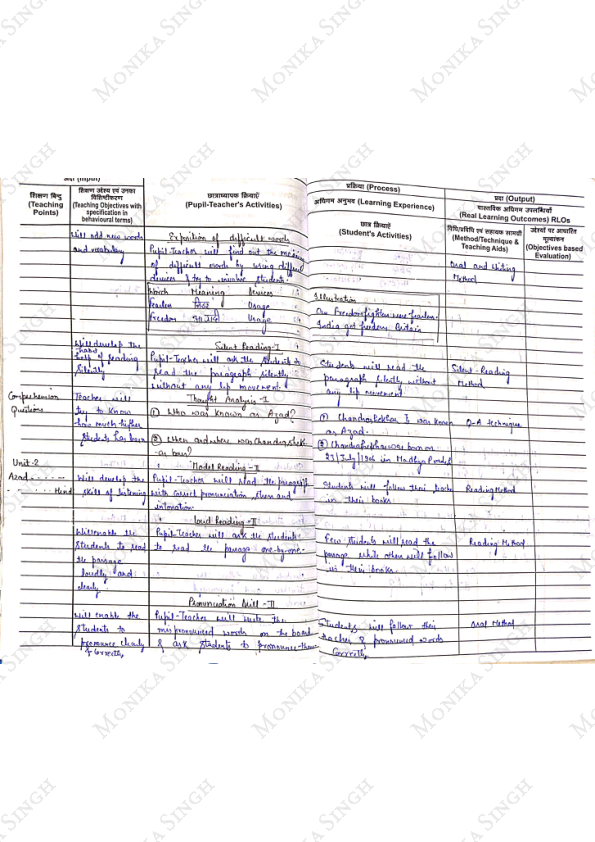 अदा (Input)
शिक्षण बिन्दु
(Teaching
Points)
शिक्षण उद्देश्य एवं उनका
विशिष्टीकरण
(Teaching Objectives with
specification in
behavioural terms)
छात्राध्यापक क्रियाएँ
(Pupil-Teacher's Activities)
प्रक्रिया (Process)
अधिगम अनुभव (Learning Experience)
छात्र क्रियाएँ
(Student's Activities)
प्रदा (Output)
वास्तविक अधिगम उपलब्धियाँ
(Real Learning Outcomes) RLOs
विधि/प्रविधि एवं सहायक सामग्री
(Method/Technique &
Teaching Aids)
उद्देश्यों पर आधारित
मूल्यांकन
(Objectives based
Evaluation)
Will add new words
and vocabulary
Exposition of difficult words
Pupil-Teacher will find out the meaning
of difficult words by using different
devices & try to involve students.
Words Meaning Devices
Fearless निडर Usage
Freedom आजादी Usage
Illustration
Our Freedom fighters were fearless.
India got freedom Britain
Oral and Writing
Method
Will develop the
help of reading
silently
Silent Reading-I
Pupil-Teacher will ask the students to
read the paragraph silently
without any lip movement
Students will read the
paragraph silently without
any lip movement
Silent-Reading
Method
Comprehension
Questions
Teacher will
try to know
how much
students has been
Thought Analysis-I
① Who was known as Azad?
② When and where was Chandrashekhar
born?
① Chandrashekhar I was known
as Azad.
② Chandrashekhar was born on
23/July/1906 in Madhya Pradesh
Q-A technique
Unit-2
Azad.......
....... Hand
Will develop the
skill of listening
Model Reading-II
Pupil-Teacher will read the paragraph
with correct pronunciation, stress and
intonation
Students will follow their teacher
in their books.
Reading Method
Will enable the
students to read
the passage
loudly and
clearly
Loud Reading-II
Pupil-Teacher will ask the students
to read the passage one-by-one.
Few students will read the
passage while other will follow
in their books.
Reading Method
Will enable the
students to
pronounce clearly
& correctly
Pronunciation Drill-II
Pupil-Teacher will write the
mispronounced words on the board
& ask students to pronounce them
Students will follow their
teacher & pronounced words
correctly
Oral Method
MONIKA SINGH